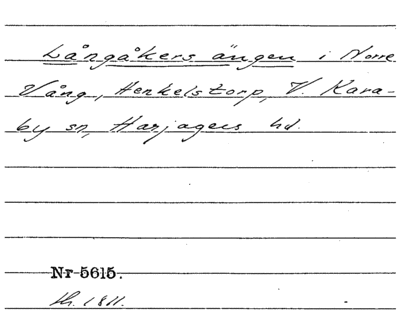 Långåkers ängen i Norre
Vång, Henkelstorp, V. Kara-
by sn, Harjagers hd.
Nr 5615.
1811.